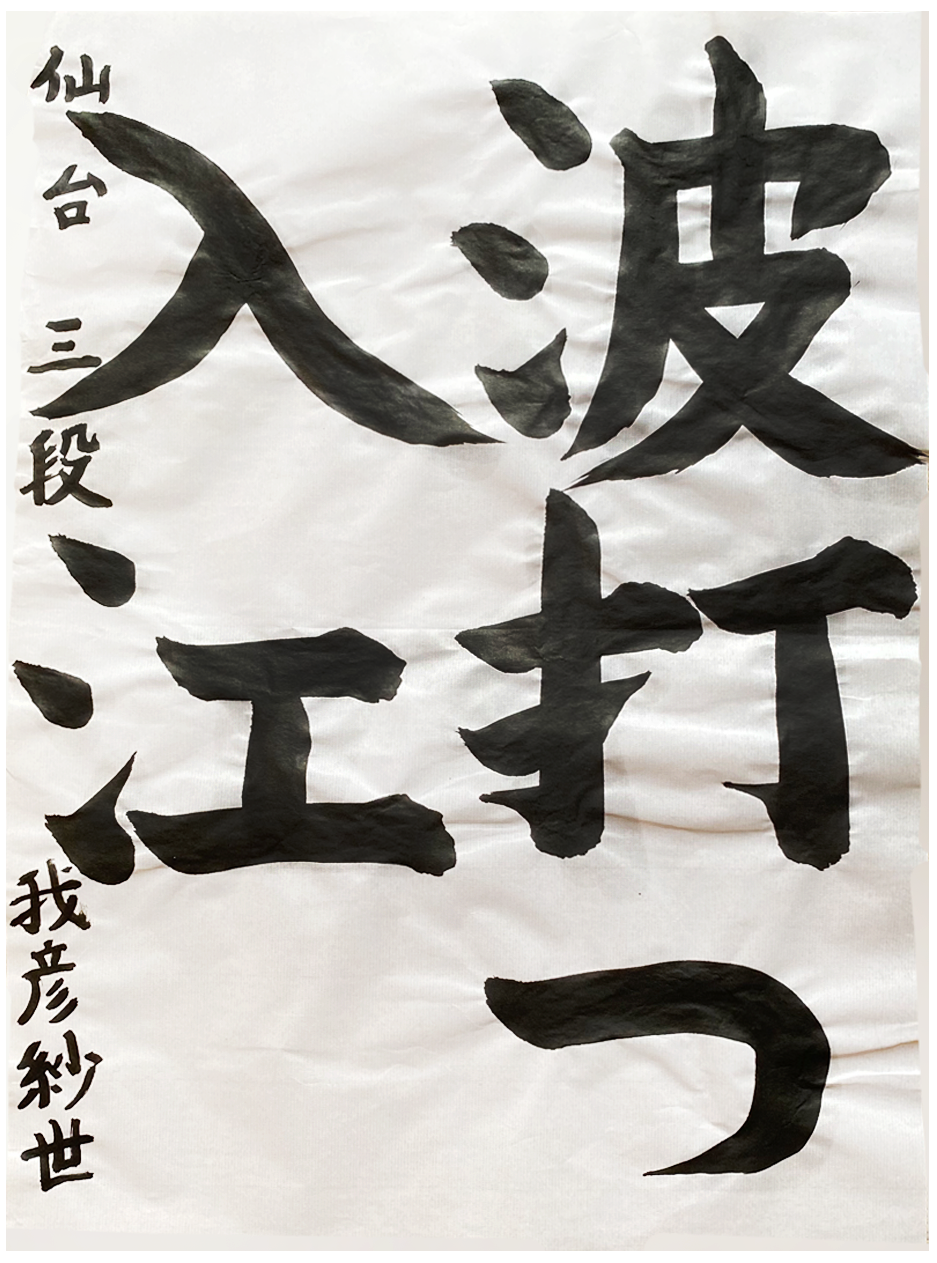 波打つ
入江
仙台 三段 我彦紗世